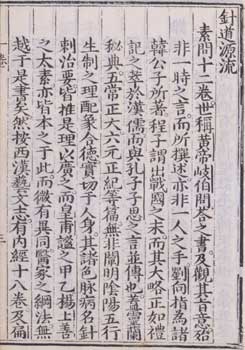 針道源流
素問十二卷世稱黃帝岐伯問荅之書及觀其旨意殆
非一時之言而所撰述亦非一人之手劉向指為諸
韓公子所著程子謂出戰國之末而其大略正如禮
記之萃於漢儒而與孔子子思之言並傳也盖靈蘭
秘典五常正大六元正紀等篇無非闡明陰陽五行
生制之理配象合德實切于人身其諸色脉病名針
刺治要皆推是理以廣之而皇甫謐之甲乙楊上善
之太素亦皆本之于此而微有異同醫家之綱法無
越于是書矣然按西漢藝文志有內經十八卷及扁